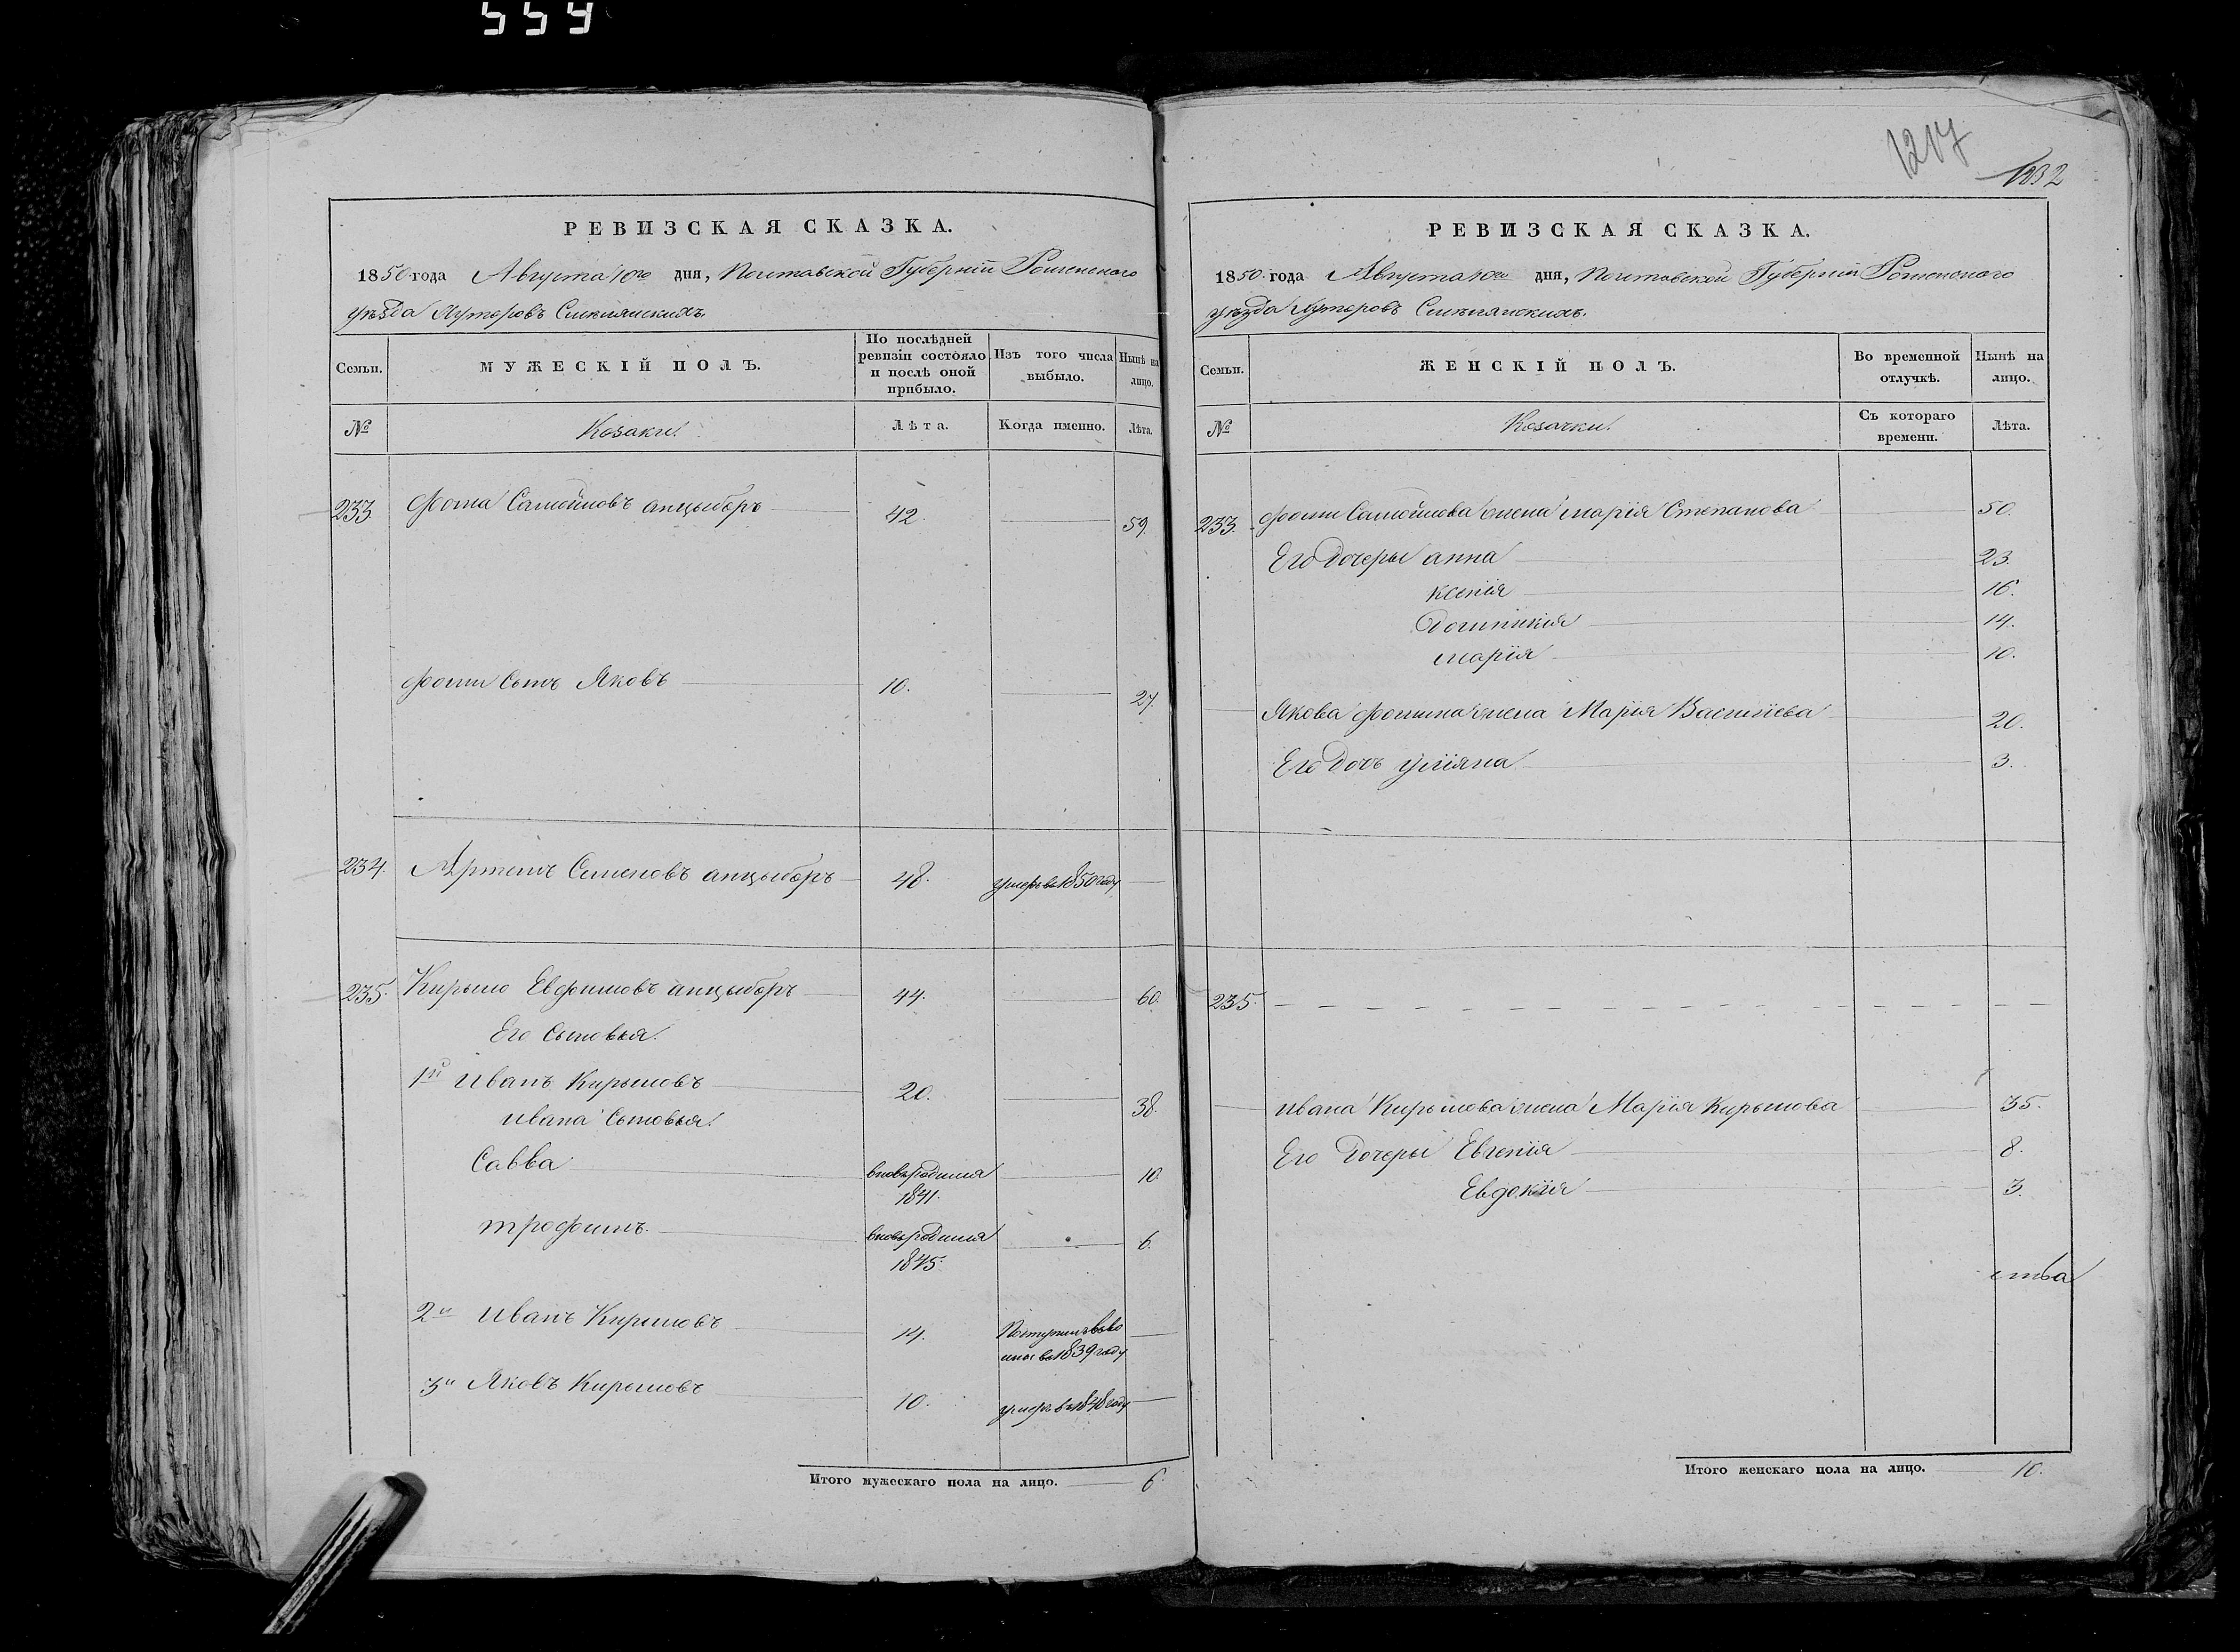 559
1217
1232
РЕВИЗСКАЯ СКАЗКА.
1850 года Августа 10го дня, Полтавской Губерніи Роменского
уѣзда Хуторовъ
Семьи.
МУЖЕСКІЙ ПОЛЪ.
По послѣдней ревизіи состояло и послѣ оной прибыло.
Изъ того числа выбыло.
Нынѣ на лицо.
№
Козаки.
Лѣта.
Когда именно.
Лѣта.
233. Фома Самойловъ анцыборъ 42. 59.
Фомы Сынъ Яковъ 10. 27.
234. Артемъ Семеновъ анцыборъ 48. умеръ въ 1850 году
235. Кирыло Евфимовъ анцыборъ 44. 60.
Его Сыновья.
1й Иванъ Кирыловъ 20. 38.
Ивана Сыновья.
Савва вновь родился 10
1841.
трофимъ. вновь родился 6.
1845.
2й Иванъ Кириловъ 14.
въ 1839 году
3й Яковъ Кирыловъ 10. умеръ въ 1848 году
Итого мужескаго пола на лицо. 6.
РЕВИЗСКАЯ СКАЗКА.
1850 года Августа 10го дня, Полтавской Губерніи Роменского
уѣзда Хуторовъ
Семьи.
ЖЕНСКІЙ ПОЛЪ.
Во временной отлучкѣ.
Нынѣ на лицо.
№
Козачки.
Съ котораго времени.
Лѣта.
233. Фомы Самойлова жена марія Степанова 50.
Его дочеры анна 23.
ксенія 16.
Домникія 14.
марія 10.
Якова Фомина жена Марія Василіева 20.
Его дочъ уліяна 3.
235.
ивана Кирылова жена Марія Кирылова 35.
Его дочеры Евгенія 8.
Евдокія 3.
Итого женскаго пола на лицо. 10.